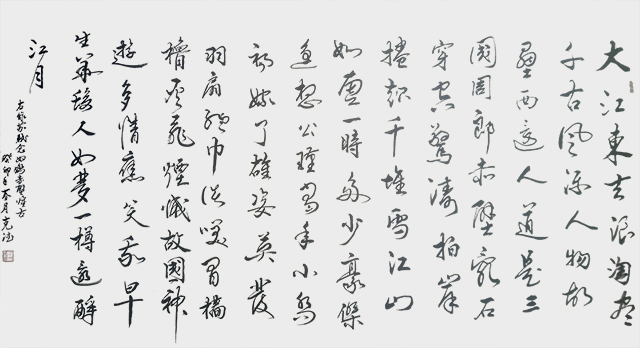 大江東去浪淘尽
千古風流人物故
壘西邊人道是三
國周郎赤壁乱石
穿空驚濤拍岸
捲起千堆雪江山
如畫一時多少豪傑
遙想公瑾當年小喬
初嫁了雄姿英發
羽扇綸巾談笑間檣
櫓灰飛煙滅故國神
遊多情應笑我早
生華髮人如夢一樽還酹
江月
右錄蘇軾念奴嬌赤壁懷古
癸卯